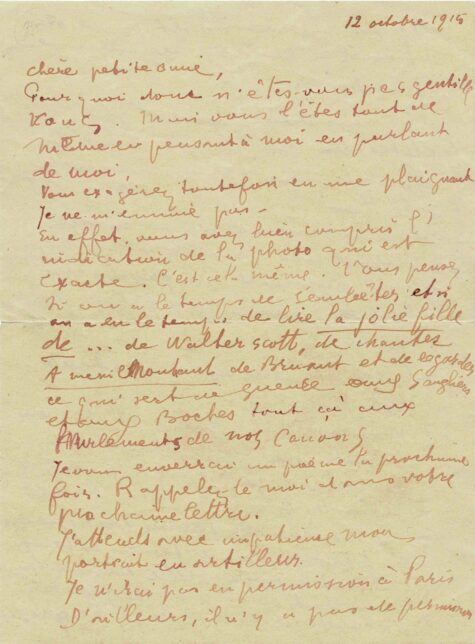 12 octobre 1915
chère petite amie,
Pourquoi donc n'êtes-vous pas gentille
. Mais vous l'êtes tout de
même en pensant à moi en parlant
de moi,
Vous exagérez toutefois en me plaignant
Je ne m'ennuie pas -
En effet, vous avez bien compris l'
indication de la photo qui est
exacte. C'est cela même. Vous pensez
si on a le temps de s'embêter et si
on a eu le temps de lire la jolie fille
de ... de Walter Scott, de chanter
A Menilmontant de Bruant et de regarder
ce qui sert de gueule aux Sangliers
et aux Boches tout ça aux
Hurlements de nos Canons
Je vous enverrai un poème la prochaine
fois. Rappelez le moi dans votre
prochaine lettre.
J'attends avec impatience mon
portrait en artilleur.
Je n'irai pas en permission à Paris
D'ailleurs, il n'y a pas de permission